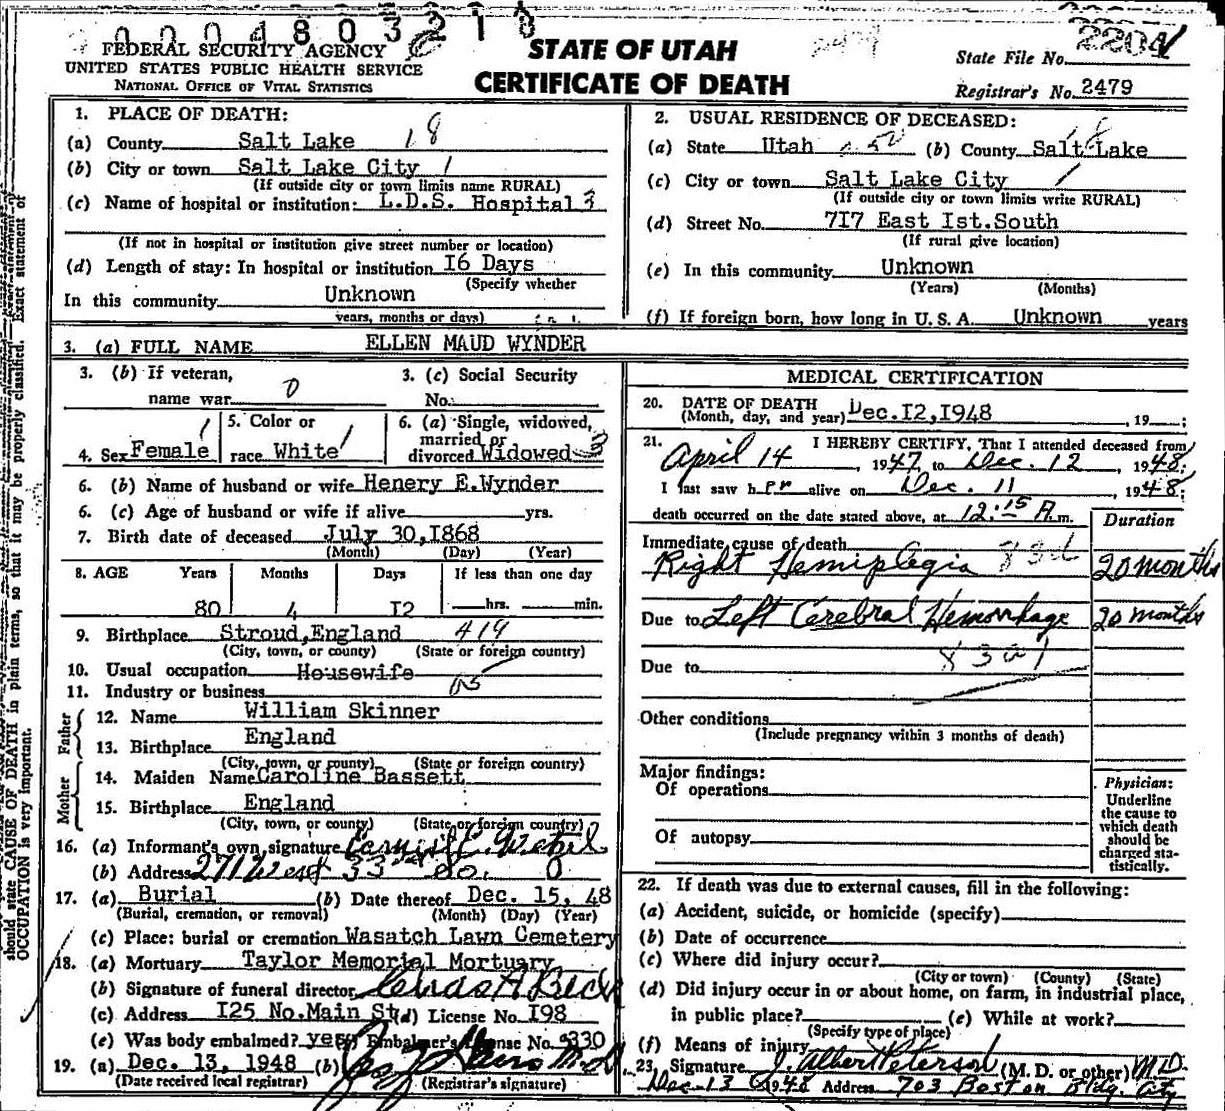 0 0 0 4 8 0 3 2 1 8
FEDERAL SECURITY AGENCY
UNITED STATES PUBLIC HEALTH SERVICE
NATIONAL OFFICE OF VITAL STATISTICS
STATE OF UTAH
CERTIFICATE OF DEATH
2479
State File No. 2204
Registrar's No. 2479
1. PLACE OF DEATH:
(a) County Salt Lake 18
(b) City or town Salt Lake City 1
(If outside city or town limits name RURAL)
(c) Name of hospital or institution: L.D.S. Hospital 3
(If not in hospital or institution give street number or location)
(d) Length of stay: In hospital or institution I6 Days
(Specify whether
In this community Unknown
years, months or days)
2. USUAL RESIDENCE OF DECEASED:
(a) State Utah (b) County Salt Lake 18
(c) City or town Salt Lake City 1
(If outside city or town limits write RURAL)
(d) Street No. 7I7 East Ist.South
(If rural give location)
(e) In this community Unknown
(Years) (Months)
(f) If foreign born, how long in U. S. A. Unknown years
3. (a) FULL NAME ELLEN MAUD WYNDER
3. (b) If veteran, name war 0
3. (c) Social Security No.
4. Sex Female 1
5. Color or race White 1
6. (a) Single, widowed, married or divorced Widowed 3
6. (b) Name of husband or wife Henery E.Wynder
6. (c) Age of husband or wife if alive yrs.
7. Birth date of deceased July 30,I868
(Month) (Day) (Year)
8. AGE Years Months Days If less than one day
80 4 I2 hrs. min.
9. Birthplace Stroud,England 419
(City, town, or county) (State or foreign country)
10. Usual occupation Housewife
11. Industry or business
Father
12. Name William Skinner
13. Birthplace England
(City, town, or county) (State or foreign country)
Mother
14. Maiden Name Caroline Bassett
15. Birthplace England
(City, town, or county) (State or foreign country)
16. (a) Informant's own signature
(b) Address 271 West 33rd So. 0
17. (a) Burial (b) Date thereof Dec. 15, 48
(Burial, cremation, or removal) (Month) (Day) (Year)
(c) Place: burial or cremation Wasatch Lawn Cemetery
18. (a) Mortuary Taylor Memorial Mortuary
(b) Signature of funeral director
(c) Address I25 No.Main St. (d) License No. I98
(e) Was body embalmed? yes (f) Embalmer's License No. 330
19. (a) Dec. 13, 1948 (b)
(Date received local registrar) (Registrar's signature)
MEDICAL CERTIFICATION
20. DATE OF DEATH
(Month, day, and year) Dec.I2,I948 , 19 ;
21. I HEREBY CERTIFY, That I attended deceased from
April 14 , 1947, to Dec. 12 , 1948;
I last saw her alive on Dec. 11 , 1948;
death occurred on the date stated above, at 12:15 A.m.
Duration
Immediate cause of death
Right Hemiplegia 83d 20 months
Due to Left Cerebral Hemorrhage 20 months
Due to
Other conditions
(Include pregnancy within 3 months of death)
Major findings:
Of operations
Of autopsy
Physician:
Underline
the cause to
which death
should be
charged sta-
tistically.
22. If death was due to external causes, fill in the following:
(a) Accident, suicide, or homicide (specify)
(b) Date of occurrence
(c) Where did injury occur?
(City or town) (County) (State)
(d) Did injury occur in or about home, on farm, in industrial place,
in public place? (e) While at work?
(Specify type of place)
(f) Means of injury
23. Signature J. Albert Peterson (M. D. or other) M.D.
Dec 13 1948 Address 703 Boston Bldg. City
should state CAUSE OF DEATH in plain terms, so that it may be properly classified. Exact statement of
OCCUPATION is very important.